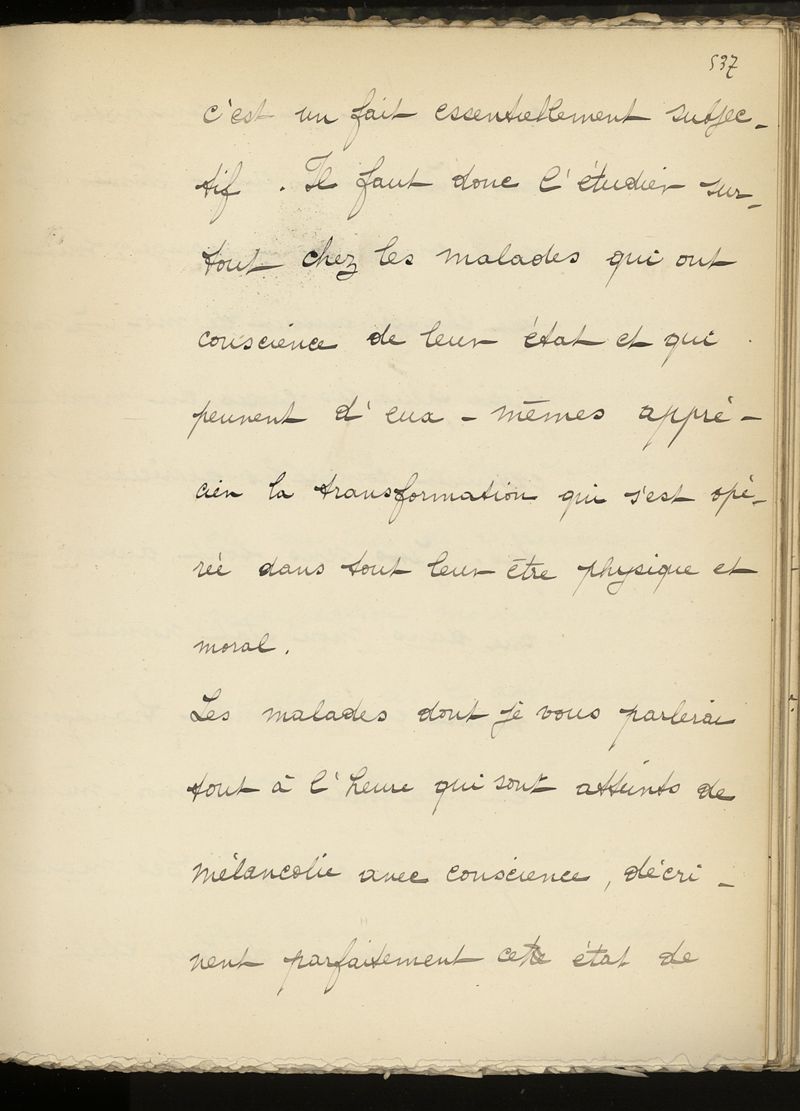 537
c'est un fait essentiellement subjec-
tif. Il faut donc l'étudier sur-
tout chez les malades qui ont
conscience de leur état et qui
peuvent d'eux-mêmes appré-
cier la transformation qui s'est opé-
rée dans tout leur être physique et
moral.
Les malades dont je vous parlerai
tout à l'heure qui sont atteints de
mélancolie avec conscience, décri-
vent parfaitement cette état de